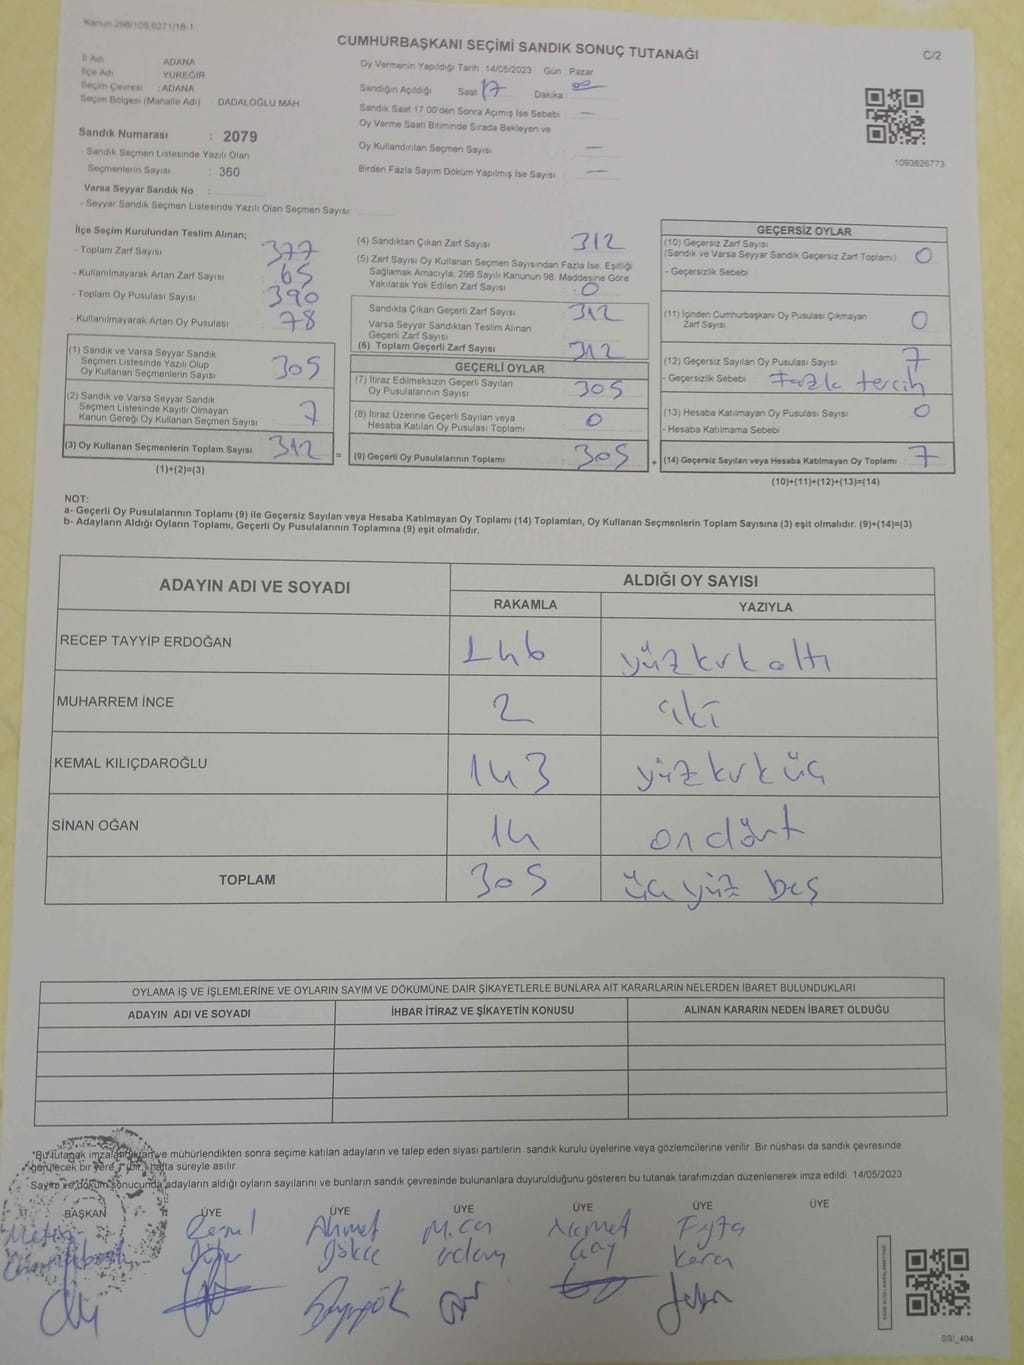 Kanun 298/105.6271/18-1
CUMHURBAŞKANI SEÇİMİ SANDIK SONUÇ TUTANAĞI
C/2
İl Adı ADANA
İlçe Adı YÜREĞİR
Seçim Çevresi : ADANA
Seçim Bölgesi (Mahalle Adı) DADALOĞLU MAH
Sandık Numarası : 2079
- Sandık Seçmen Listesinde Yazılı Olan
Seçmenlerin Sayısı : 360
Varsa Seyyar Sandık No :
- Seyyar Sandık Seçmen Listesinde Yazılı Olan Seçmen Sayısı:
Oy Vermenin Yapıldığı Tarih : 14/05/2023 Gün : Pazar
Sandığın Açıldığı Saat 17 Dakika 00
Sandık Saat 17.00'den Sonra Açımış İse Sebebi : —
Oy Verme Saati Bitiminde Sırada Bekleyen ve
Oy Kullandırılan Seçmen Sayısı —
Birden Fazla Sayım Döküm Yapılmış İse Sayısı —
1093826773
İlçe Seçim Kurulundan Teslim Alınan;
- Toplam Zarf Sayısı 377
- Kullanılmayarak Artan Zarf Sayısı : 65
- Toplam Oy Pusulası Sayısı : 390
- Kullanılmayarak Artan Oy Pusulası : 78
(1) Sandık ve Varsa Seyyar Sandık
Seçmen Listesinde Yazılı Olup
Oy Kullanan Seçmenlerin Sayısı : 305
(2) Sandık ve Varsa Seyyar Sandık
Seçmen Listesinde Kayıtlı Olmayan
Kanun Gereği Oy Kullanan Seçmen Sayısı : 7
(3) Oy Kullanan Seçmenlerin Toplam Sayısı : 312
(1)+(2)=(3)
=
(4) Sandıktan Çıkan Zarf Sayısı 312
(5) Zarf Sayısı Oy Kullanan Seçmen Sayısından Fazla İse, Eşitliği
Sağlamak Amacıyla; 298 Sayılı Kanunun 98. Maddesine Göre
Yakılarak Yok Edilen Zarf Sayısı : 0
Sandıkta Çıkan Geçerli Zarf Sayısı : 312
Varsa Seyyar Sandıktan Teslim Alınan
Geçerli Zarf Sayısı
(6) Toplam Geçerli Zarf Sayısı 312
GEÇERLİ OYLAR
(7) İtiraz Edilmeksizin Geçerli Sayılan
Oy Pusulalarının Sayısı : 305
(8) İtiraz Üzerine Geçerli Sayılan veya
Hesaba Katılan Oy Pusulaları Toplamı : 0
(9) Geçerli Oy Pusulalarının Toplamı : 305
+
GEÇERSİZ OYLAR
(10) Geçersiz Zarf Sayısı
(Sandık ve Varsa Seyyar Sandık Geçersiz Zarf Toplamı) : 0
- Geçersizlik Sebebi
(11) İçinden Cumhurbaşkanı Oy Pusulası Çıkmayan
Zarf Sayısı 0
(12) Geçersiz Sayılan Oy Pusulası Sayısı : 7
- Geçersizlik Sebebi : Fazla tercih
(13) Hesaba Katılmayan Oy Pusulası Sayısı : 0
- Hesaba Katılmama Sebebi
(14) Geçersiz Sayılan veya Hesaba Katılmayan Oy Toplamı : 7
(10)+(11)+(12)+(13)=(14)
NOT:
a- Geçerli Oy Pusulalarının Toplamı (9) ile Geçersiz Sayılan veya Hesaba Katılmayan Oy Toplamı (14) Toplamları, Oy Kullanan Seçmenlerin Toplam Sayısına (3) eşit olmalıdır. (9)+(14)=(3)
b- Adayların Aldığı Oyların Toplamı, Geçerli Oy Pusulalarının Toplamına (9) eşit olmalıdır.
ADAYIN ADI VE SOYADI
ALDIĞI OY SAYISI
RAKAMLA YAZIYLA
RECEP TAYYİP ERDOĞAN 146 yüzkırkaltı
MUHARREM İNCE 2 iki
KEMAL KILIÇDAROĞLU 143 yüzkırküç
SİNAN OĞAN 14 ondört
TOPLAM 305 üçyüz beş
OYLAMA İŞ VE İŞLEMLERİNE VE OYLARIN SAYIM VE DÖKÜMÜNE DAİR ŞİKAYETLERLE BUNLARA AİT KARARLARIN NELERDEN İBARET BULUNDUKLARI
ADAYIN ADI VE SOYADI İHBAR İTİRAZ VE ŞİKAYETİN KONUSU ALINAN KARARIN NEDEN İBARET OLDUĞU
"Bu tutanak imzalandıktan ve mühürlendikten sonra seçime katılan adayların ve talep eden siyasi partilerin sandık kurulu üyelerine veya gözlemcilerine verilir. Bir nüshası da sandık çevresinde
görülecek bir yere 1 (bir) hafta süreyle asılır.
Sayım ve döküm sonucunda adayların aldığı oyların sayılarını ve bunların sandık çevresinde bulunanlara duyurulduğunu gösteren bu tutanak tarafımızdan düzenlenerek imza edildi. 14/05/2023
BAŞKAN ÜYE ÜYE ÜYE ÜYE ÜYE ÜYE
Ahmet M. Can
Gökce
SSI_404